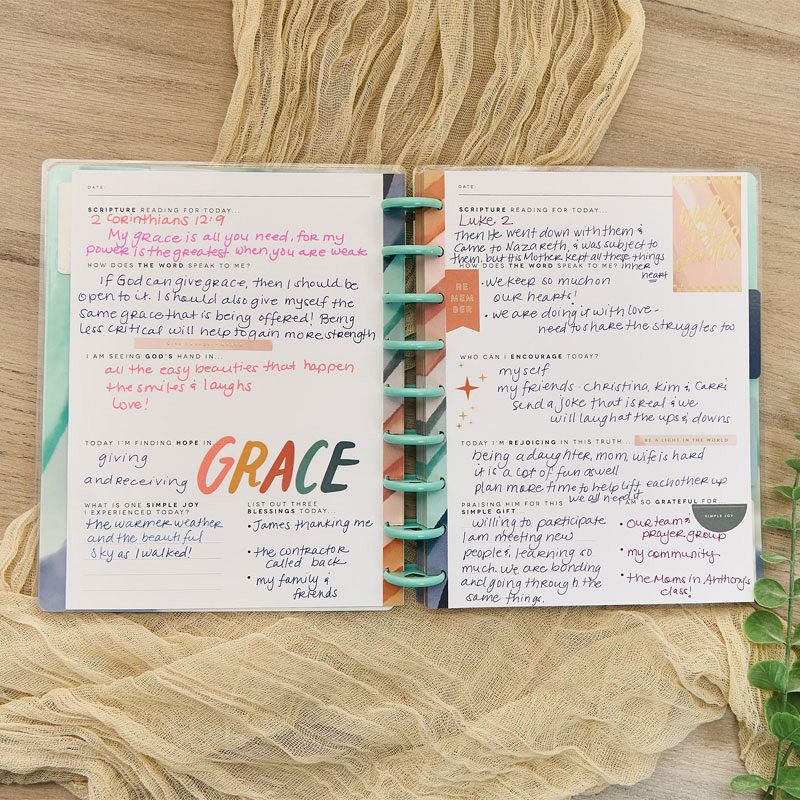 DATE:
SCRIPTURE READING FOR TODAY...
2 Corinthians 12:9
My grace is all you need, for my
power is the greatest when you are weak
HOW DOES THE WORD SPEAK TO ME?
If God can give grace, then I should be
open to it. I should also give myself the
same grace that is being offered! Being
less critical will help to gain more strength
I AM SEEING GOD'S HAND IN...
all the easy beauties that happen
the smiles & laughs
love!
TODAY I'M FINDING HOPE IN...
giving
and receiving
GRACE
WHAT IS ONE SIMPLE JOY
I EXPERIENCED TODAY?
the warmer weather
and the beautiful
sky as I walked!
LIST OUT THREE
BLESSINGS TODAY...
• James thanking me
• the contractor
called back
• my family &
friends
DATE:
SCRIPTURE READING FOR TODAY...
Luke 2
Then He went down with them &
came to Nazareth, & was subject to
them, but His Mother kept all these things
inner
heart
HOW DOES THE WORD SPEAK TO ME?
RE
MEM
BER
• we keep so much on
our hearts!
• we are doing it with love -
need to share the struggles too
WHO CAN I ENCOURAGE TODAY?
myself
my friends - christina, kim & Carri
send a joke that is real & we
will laugh at the ups & downs
TODAY I'M REJOICING IN THIS TRUTH...
BE A LIGHT IN THE WORLD
being a daughter, mom, wife is hard
it is a lot of fun as well
plan more time to help lift each other up
we all need it
PRAISING HIM FOR THIS
SIMPLE GIFT...
willing to participate
I am meeting new
people, learning so
much. we are bonding
and going through the
same things.
I AM SO GRATEFUL FOR...
SIMPLE JOY
• our team &
prayer group
• my community
• the Moms in Anthony's
class!